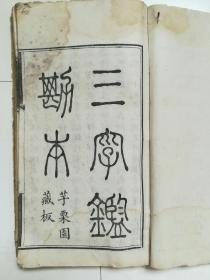 三字鑑
勘本
芋栗園
藏板